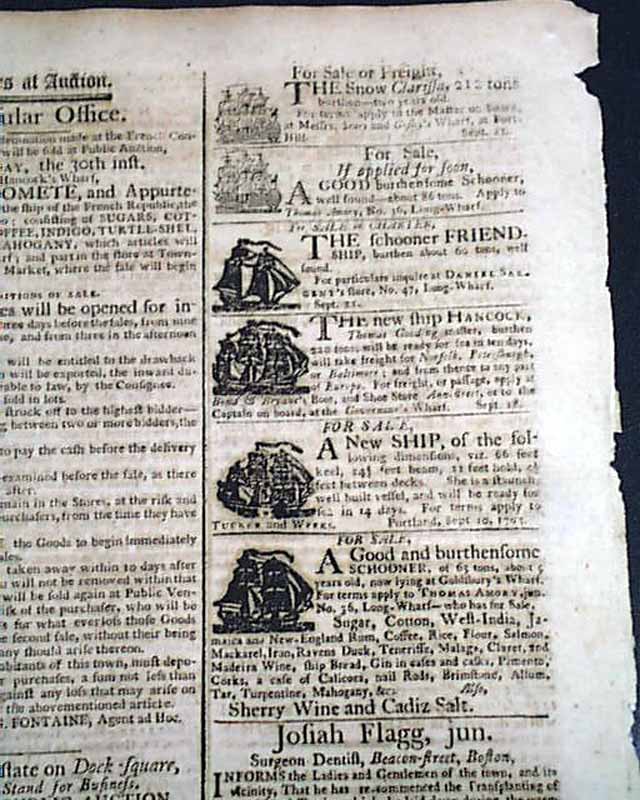 es at Auction.
ular Office.
made at the French Con-
will be sold at Public Auction,
AY, the 30th inst.
Hancock's Wharf,
OMETE, and Appurte-
the ship of the French Republic, the
consisting of SUGARS, COT-
OFFEE, INDIGO, TURTLE-SHEL,
AHOGANY, which articles will
and part in the store at Town-
Market, where the sale will begin
ITIONS OF SALE.
ces will be opened for in-
three days before the sales, from nine
and from three in the afternoon
will be entitled to the drawback
will be exported, the inward du-
able to law, by the Consignee.
sold in lots.
struck off to the highest bidder—
between two or more bidders, the
to pay the cash before the delivery
examined before the sale, as there
after.
main in the Stores, at the risk and
urchasers, from the time they have
the Goods to begin immediately
ales.
taken away within 10 days after
u will not be removed within that
will be sold again at Public Ven-
risk of the purchaser, who will be
for what ever loss those Goods
second sale, without their being
any should arise thereon.
abitants of this town, must depo-
purchases, a sum not less than
gainst any loss that may arise on
the abovementioned article.
G. FONTAINE, Agent ad Hoc.
state on Dock-square,
Stand for Business,
AUCTION
For Sale or Freight,
THE Snow Clarissa, 212 tons
burthen—two years old.
For terms apply to the Master on board,
at Messrs. Sears and Wharf, at Fort-
Hill. Sept. 21.
For Sale,
If applied for soon,
A GOOD burthensome Schooner,
well found—about 86 tons. Apply to
Thomas Amory, No. 36, Long-Wharf.
To SALE or CHARTER,
THE schooner FRIEND-
SHIP, burthen about 60 tons, well
found.
For particulars inquire at DANIEL SAR-
GENT's store, No. 47, Long-Wharf.
Sept. 21.
THE new ship HANCOCK,
Thomas Gooding master, burthen
220 tons, will be ready for sea in ten days,
will take freight for Norfolk, Petersburgh,
or Baltimore; and from thence to any part
of Europe. For freight, or passage, apply at
Bond & Bryant's Boot, and Shoe Store Ann-street, or to the
Captain on board, at the Governour's Wharf. Sept. 18.
FOR SALE,
A New SHIP, of the fol-
lowing dimensions, viz. 66 feet
keel, 24½ feet beam, 11 feet hold,
feet between decks. She is a staunch
well built vessel, and will be ready for
sea in 14 days. For terms apply to
TUCKER and WEEKS. Portland, Sept 10, 1793.
FOR SALE,
A Good and burthensome
SCHOONER, of 65 tons, about 5
years old, now lying at Goldsbury's Wharf.
For terms apply to THOMAS AMORY, jun.
No. 36, Long-Wharf—who has for Sale,
Sugar, Cotton, West-India, Ja-
maica and New-England Rum, Coffee, Rice, Flour, Salmon,
Mackarel, Iron, Ravens Duck, Teneriffe, Malaga, Claret, and
Madeira Wine, ship Bread, Gin in cases and casks, Pimento,
Corks, a case of Calicoes, nail Rods, Brimstone, Allum,
Tar, Turpentine, Mahogany, &c. Also,
Sherry Wine and Cadiz Salt.
Josiah Flagg, jun.
Surgeon Dentist, Beacon-street, Boston,
INFORMS the Ladies and Gentlemen of the town, and its
vicinity, That he has re-commenced the Transplanting of